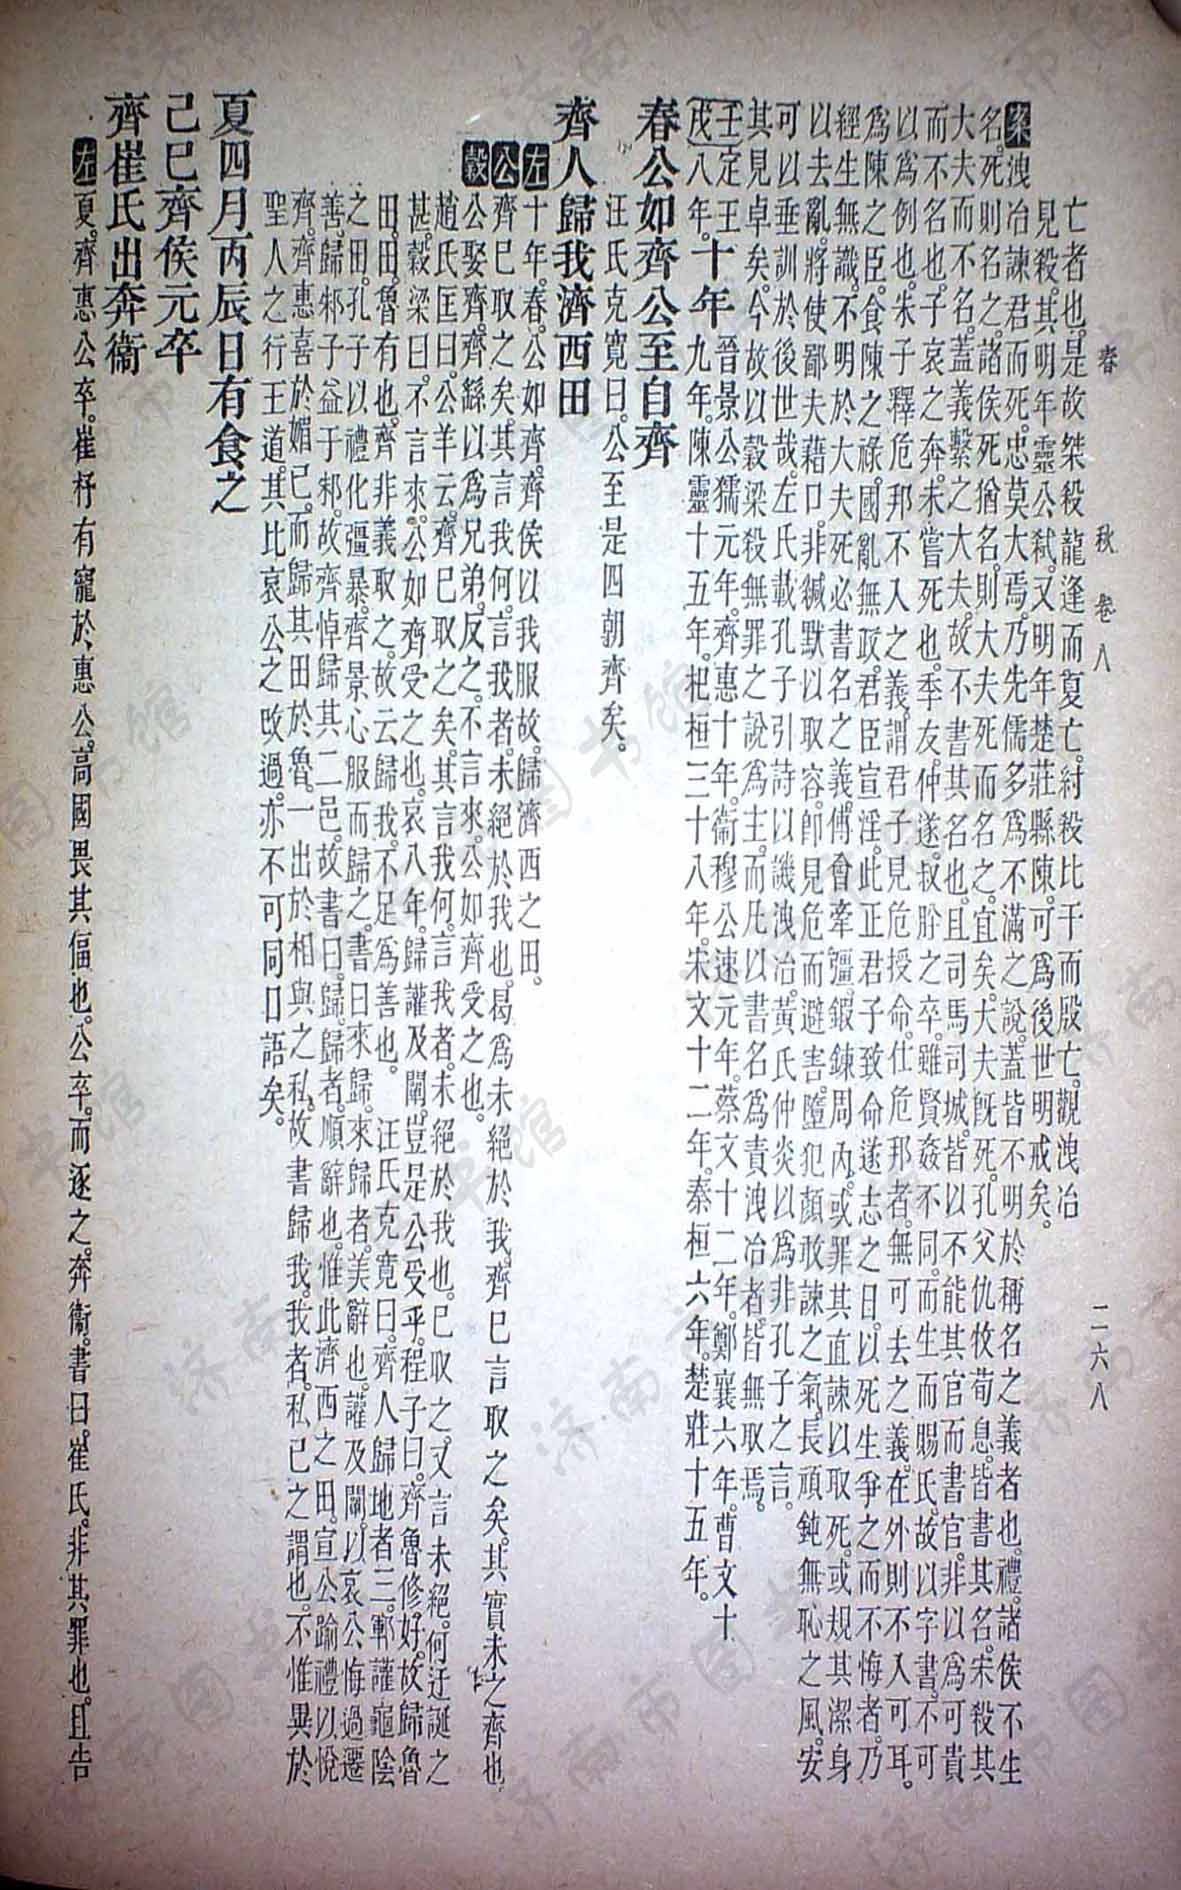 春秋 卷八 二六八
亡者也。是故桀殺龍逢而夏亡。紂殺比干而殷亡。觀洩冶
見殺。其明年靈公弑。又明年楚莊縣陳。可爲後世明戒矣。
案洩冶諫君而死。忠莫大焉。乃先儒多爲不滿之說。蓋皆不明於稱名之義者也。禮。諸侯不生
名。死則名之。諸侯死猶名。則大夫死而名之。宜矣。大夫既死。孔父仇牧荀息。皆書其名。宋殺其
大夫而不名。蓋義繫之大夫。故不書其名也。且司馬司城。皆以不能其官而書官。非以爲可貴
而不名也。子哀之奔。未嘗死也。季友。仲遂。叔肸之卒。雖賢姦不同。而生而賜氏。故以字書。不可
以爲例也。朱子釋危邦不入之義。謂君子見危授命。仕危邦者。無可去之義。在外則不入可耳。
爲陳之臣。食陳之祿。國亂無政。君臣宣淫。此正君子致命遂志之日。以死生爭之而不悔者。乃
經生無識。不明於大夫死必書名之義。傅會牽彊。鍜鍊周內。或罪其直諫以取死。或規其潔身
以去亂。將使鄙夫藉口。非緘默以取容。卽見危而避害。墮犯顏敢諫之氣。長頑鈍無恥之風。安
可以垂訓於後世哉。左氏載孔子引詩以譏洩冶。黃氏仲炎以爲非孔子之言。
其見卓矣。今故以穀梁殺無罪之說爲主。而凡以書名爲責洩冶者。皆無取焉。
壬戌 定王八年。十年 晉景公獳元年。齊惠十年。衞穆公速元年。蔡文十二年。鄭襄六年。曹文十九年。陳靈十五年。杞桓三十八年。宋文十二年。秦桓六年。楚莊十五年。
春公如齊公至自齊
汪氏克寬曰。公至是四朝齊矣。
齊人歸我濟西田
左十年。春。公如齊。齊侯以我服故。歸濟西之田。
公齊已取之矣。其言我何。言我者。未絕於我也。曷爲未絕於我。齊已言取之矣。其實未之齊也
穀公娶齊。齊繇以爲兄弟。反之。不言來。公如齊受之也。
趙氏匡曰。公羊云。齊已取之矣。其言我何。言我者。未絕於我也。已取之。又言未絕。何迂誕之
甚。穀梁曰。不言來。公如齊受之也。哀八年。歸讙及闡。豈是公受乎。程子曰。齊魯修好。故歸魯
田。田。魯有也。齊非義取之。故云歸我。不足爲善也。 汪氏克寬曰。齊人歸地者三。鄆讙龜陰
之田。孔子以禮化彊暴。齊景心服而歸之。書曰來歸。來歸者。美辭也。讙及闡。以哀公悔過遷
善。歸邾子益于邾。故齊悼歸其二邑。故書曰。歸。歸者。順辭也。惟此濟西之田。宣公踰禮以悅
齊。齊惠喜於媚己。而歸其田於魯。一出於相與之私。故書歸我。我者。私已之謂也。不惟異於
聖人之行王道。其比哀公之改過。亦不可同日語矣。
夏四月丙辰日有食之
己巳齊侯元卒
齊崔氏出奔衞
左夏。齊惠公卒。崔杼有寵於惠公。高國畏其偪也。公卒。而逐之。奔衞。書曰。崔氏。非其罪也。且告